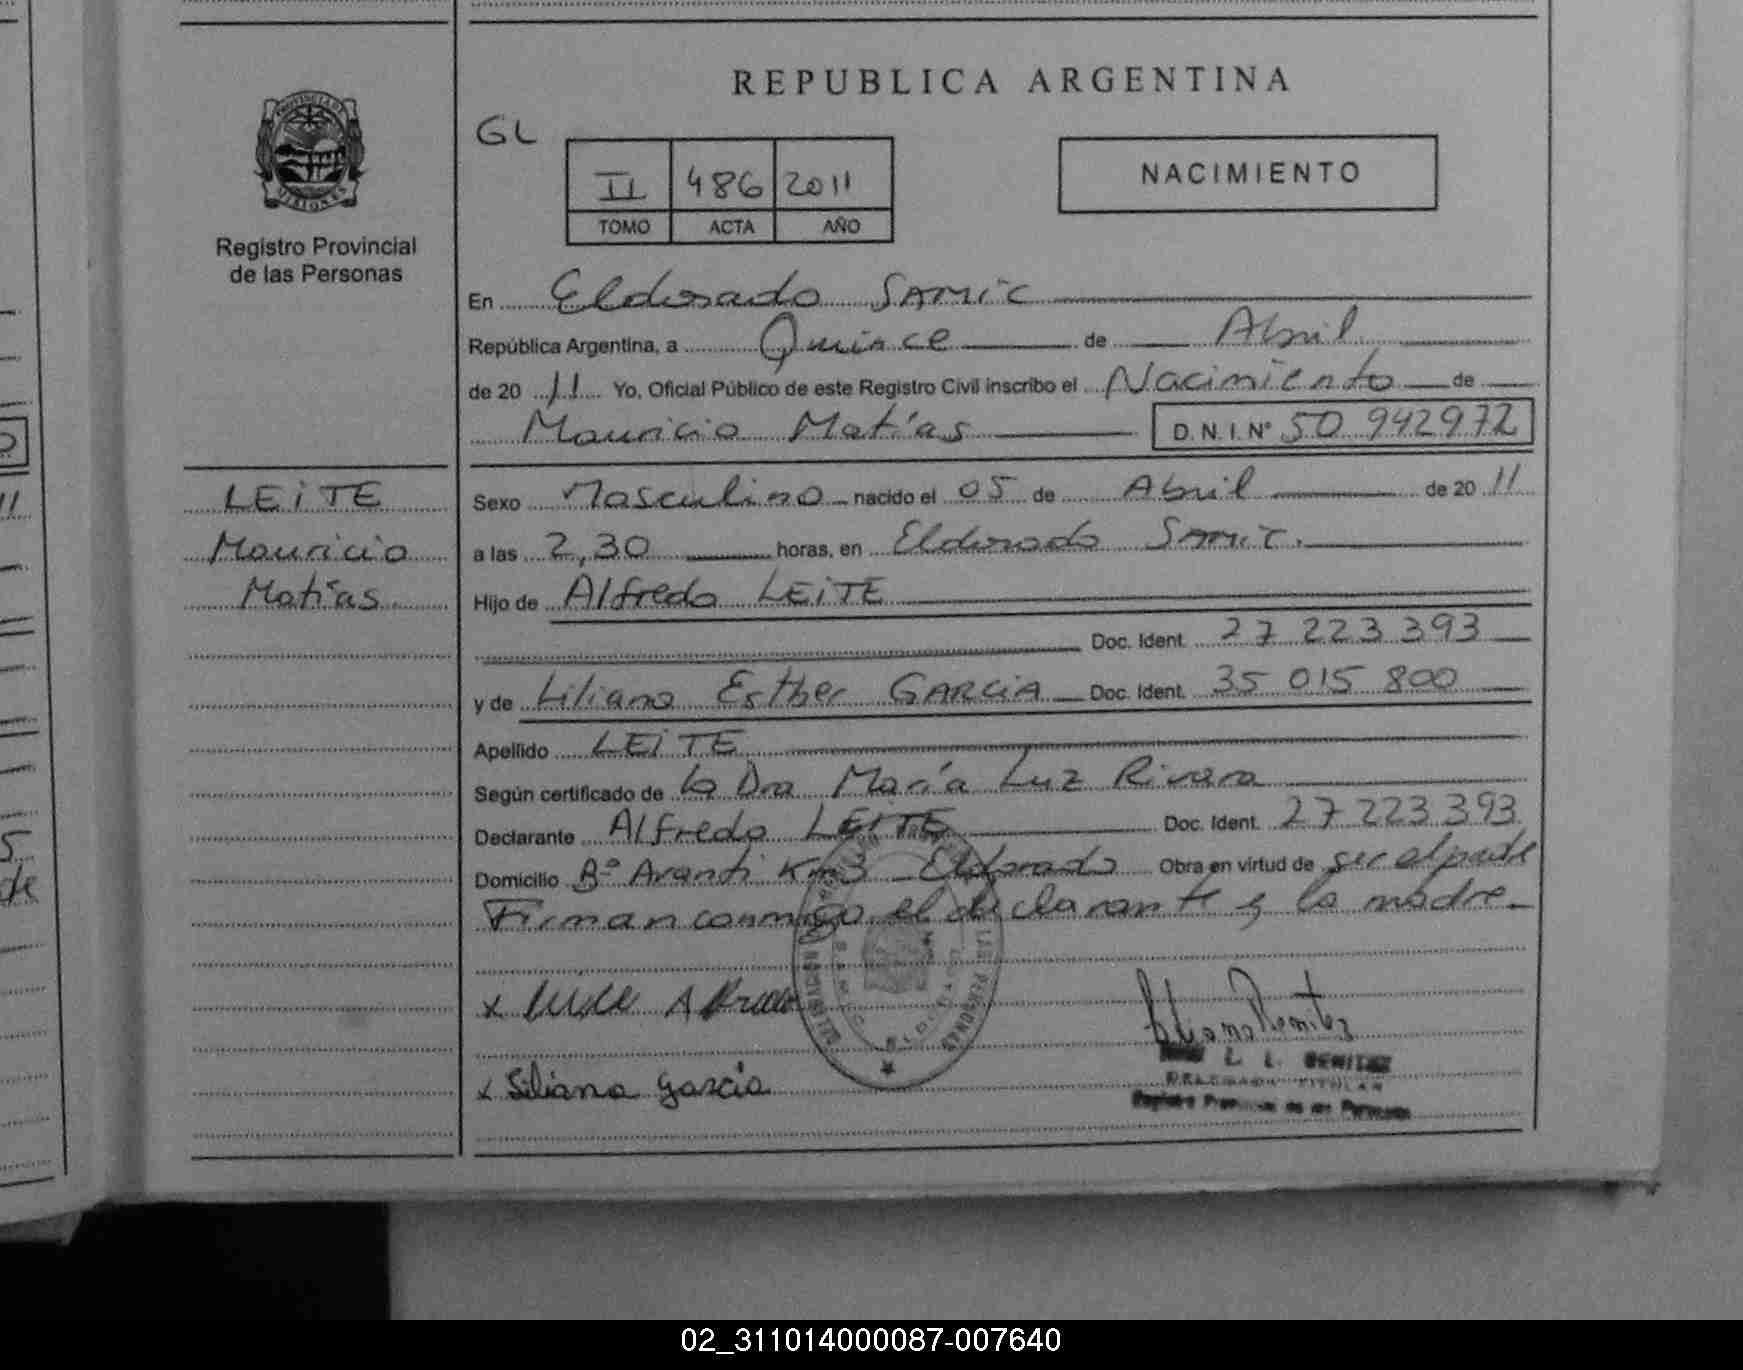 REPUBLICA ARGENTINA
GL
II 486 2011
TOMO ACTA AÑO
NACIMIENTO
PROVINCIA DE MISIONES
Registro Provincial
de las Personas
En Eldorado SAMIC
República Argentina, a Quince de Abril
de 20 11 Yo, Oficial Público de este Registro Civil inscribo el Nacimiento de
Mauricio Matías D.N.I.Nº 50 942972
LEITE
Mauricio
Matías
Sexo Masculino nacido el 05 de Abril de 20 11
a las 2,30 horas, en Eldorado Samic.
Hijo de Alfredo LEITE
Doc. Ident. 27 223 393
y de Liliana Esther GARCIA Doc. Ident. 35 015 800
Apellido LEITE
Según certificado de la Dra María Luz Rivara
Declarante Alfredo LEITE Doc. Ident. 27 223 393
Domicilio Bº Avanti Km3 Eldorado Obra en virtud de ser el padre
Firman conmigo el declarante y la madre
x
x Liliana García
L. L. BENITEZ
DELEGADA TITULAR
Registro Provincial de las Personas
02_311014000087-007640